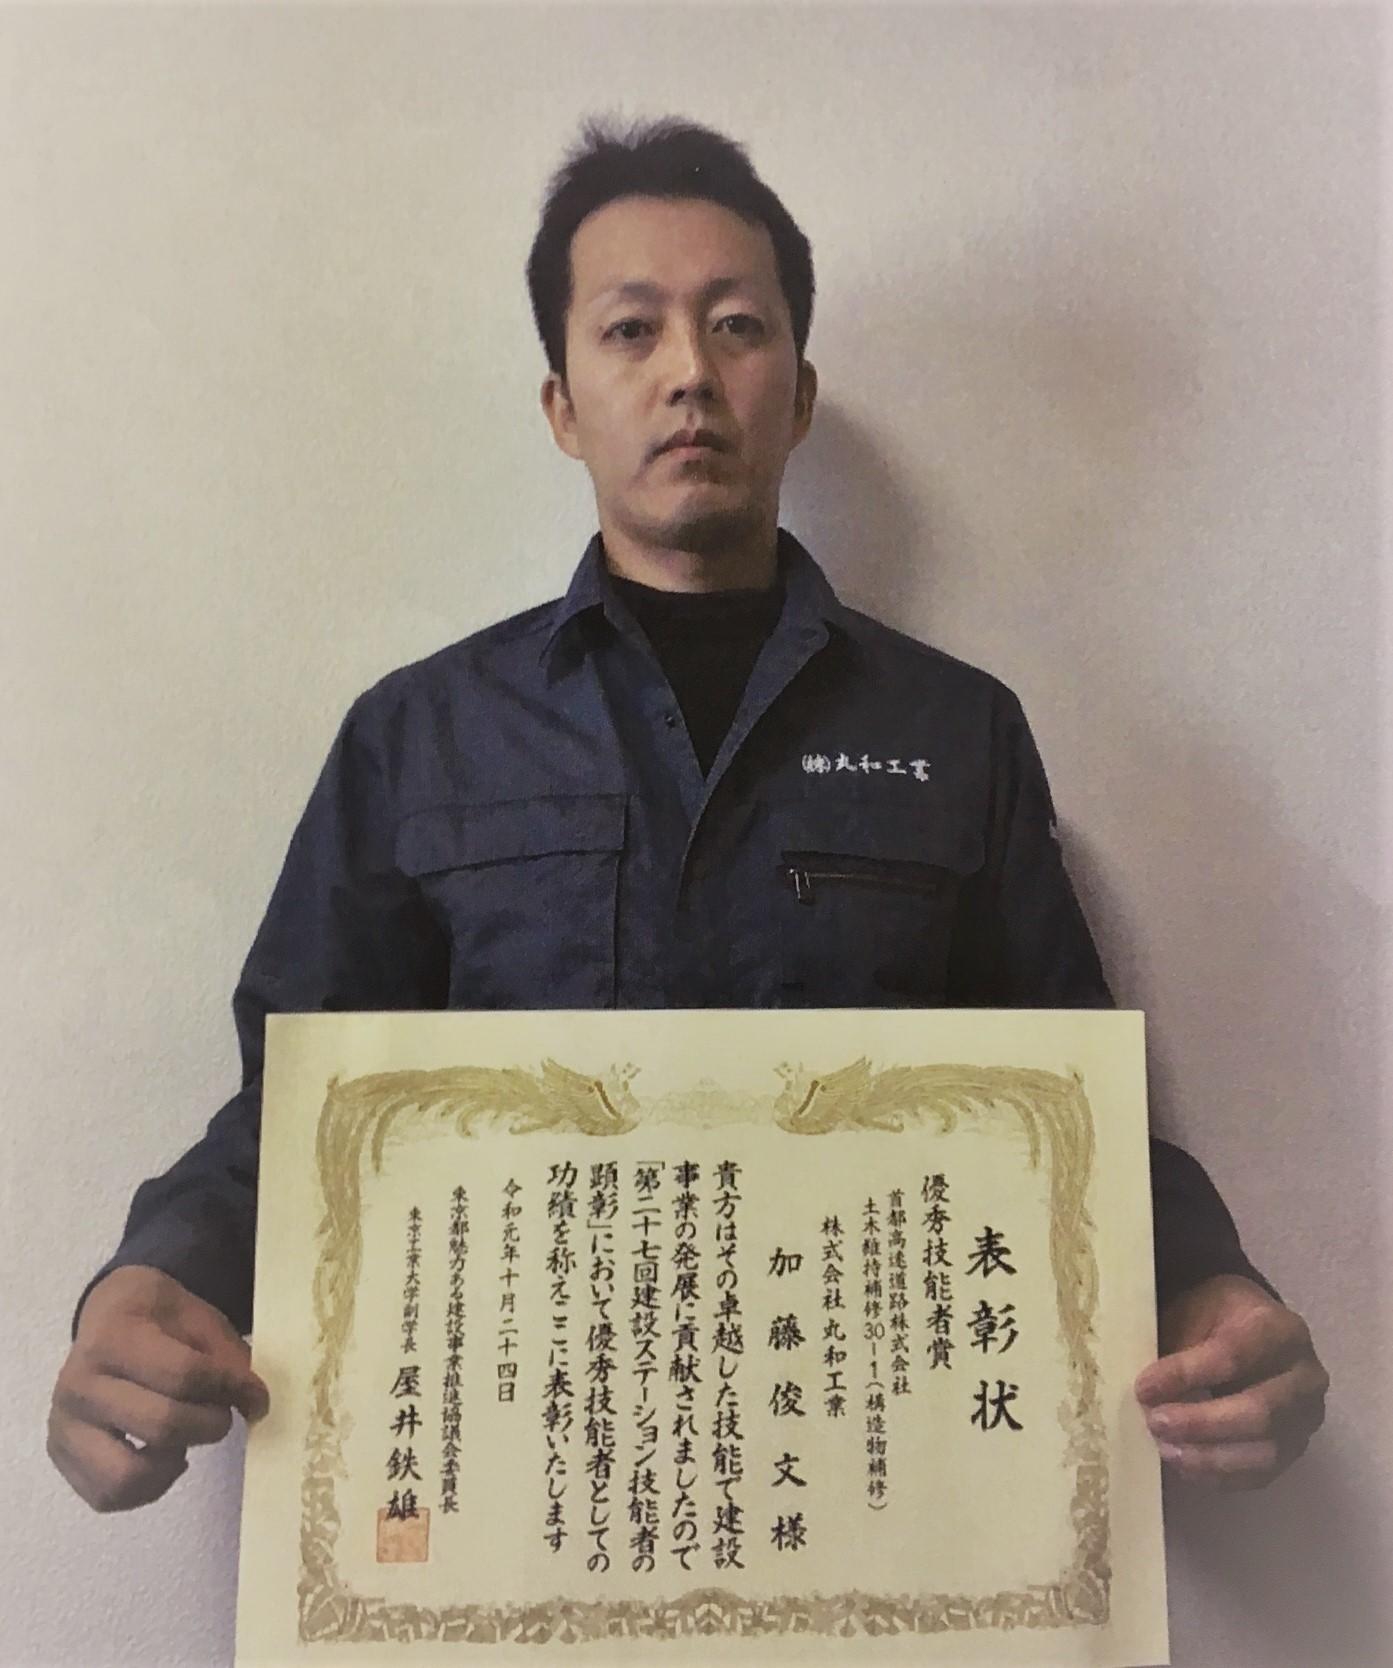 ㈱丸和工業
表彰状
優秀技能者賞
首都高速道路株式会社
土木維持補修30-1(構造物補修)
株式会社丸和工業
加藤俊文様
貴方はその卓越した技能で建設
事業の発展に貢献されましたので
「第二十七回建設ステーション技能者の
顕彰」において優秀技能者としての
功績を称えここに表彰いたします
令和元年十月二十四日
東京都魅力ある建設事業推進協議会委員長
東京工業大学副学長 屋井鉄雄